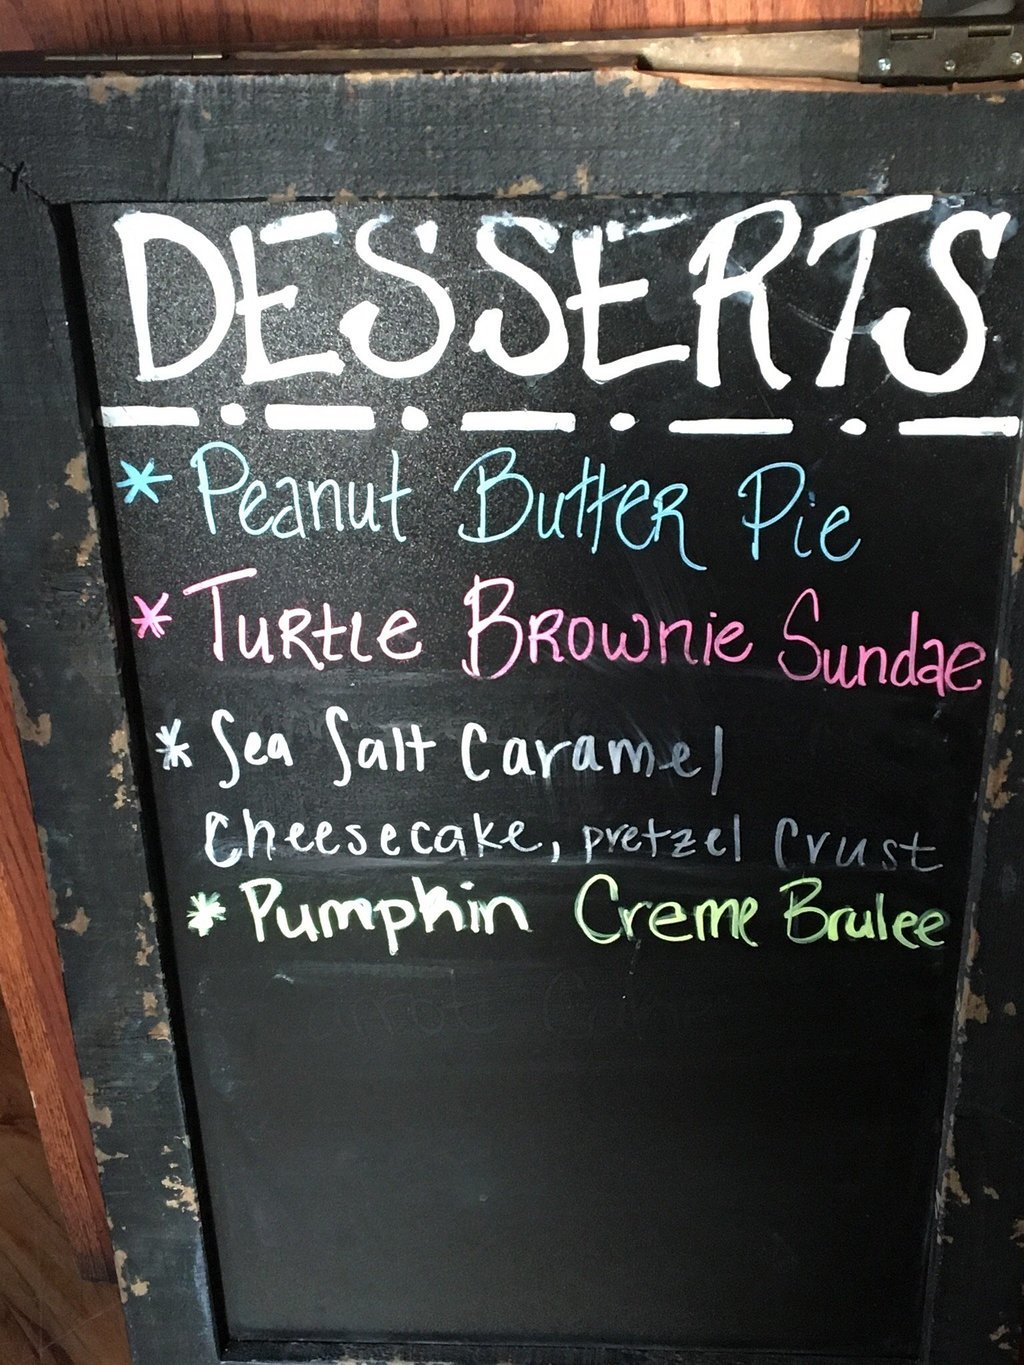 DESSERTS
* Peanut Butter Pie
* Turtle Brownie Sundae
* Sea Salt Caramel
Cheesecake, pretzel Crust
* Pumpkin Creme Brulee